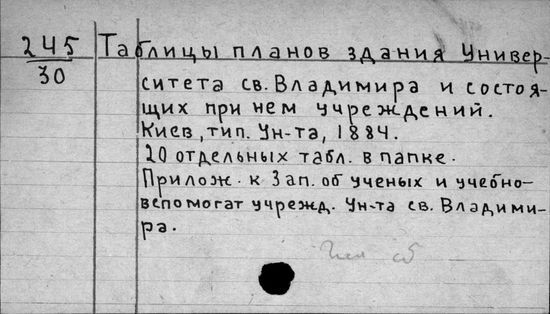 245
30
Таблицы планов здания Универ-
ситета св. Владимира и состоя-
щих при нем учреждений.
Киев, тип. Ун-та, 1884.
20 отдельных табл. в папке.
Прилож. к Зап. об ученых и учебно-
вспомогат учрежд. Ун-та св. Владими-
ра.